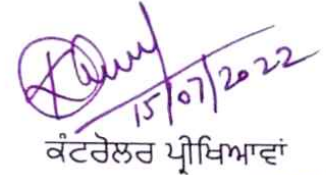 15/07/2022
ਕੰਟਰੋਲਰ ਪ੍ਰੀਖਿਆਵਾਂ